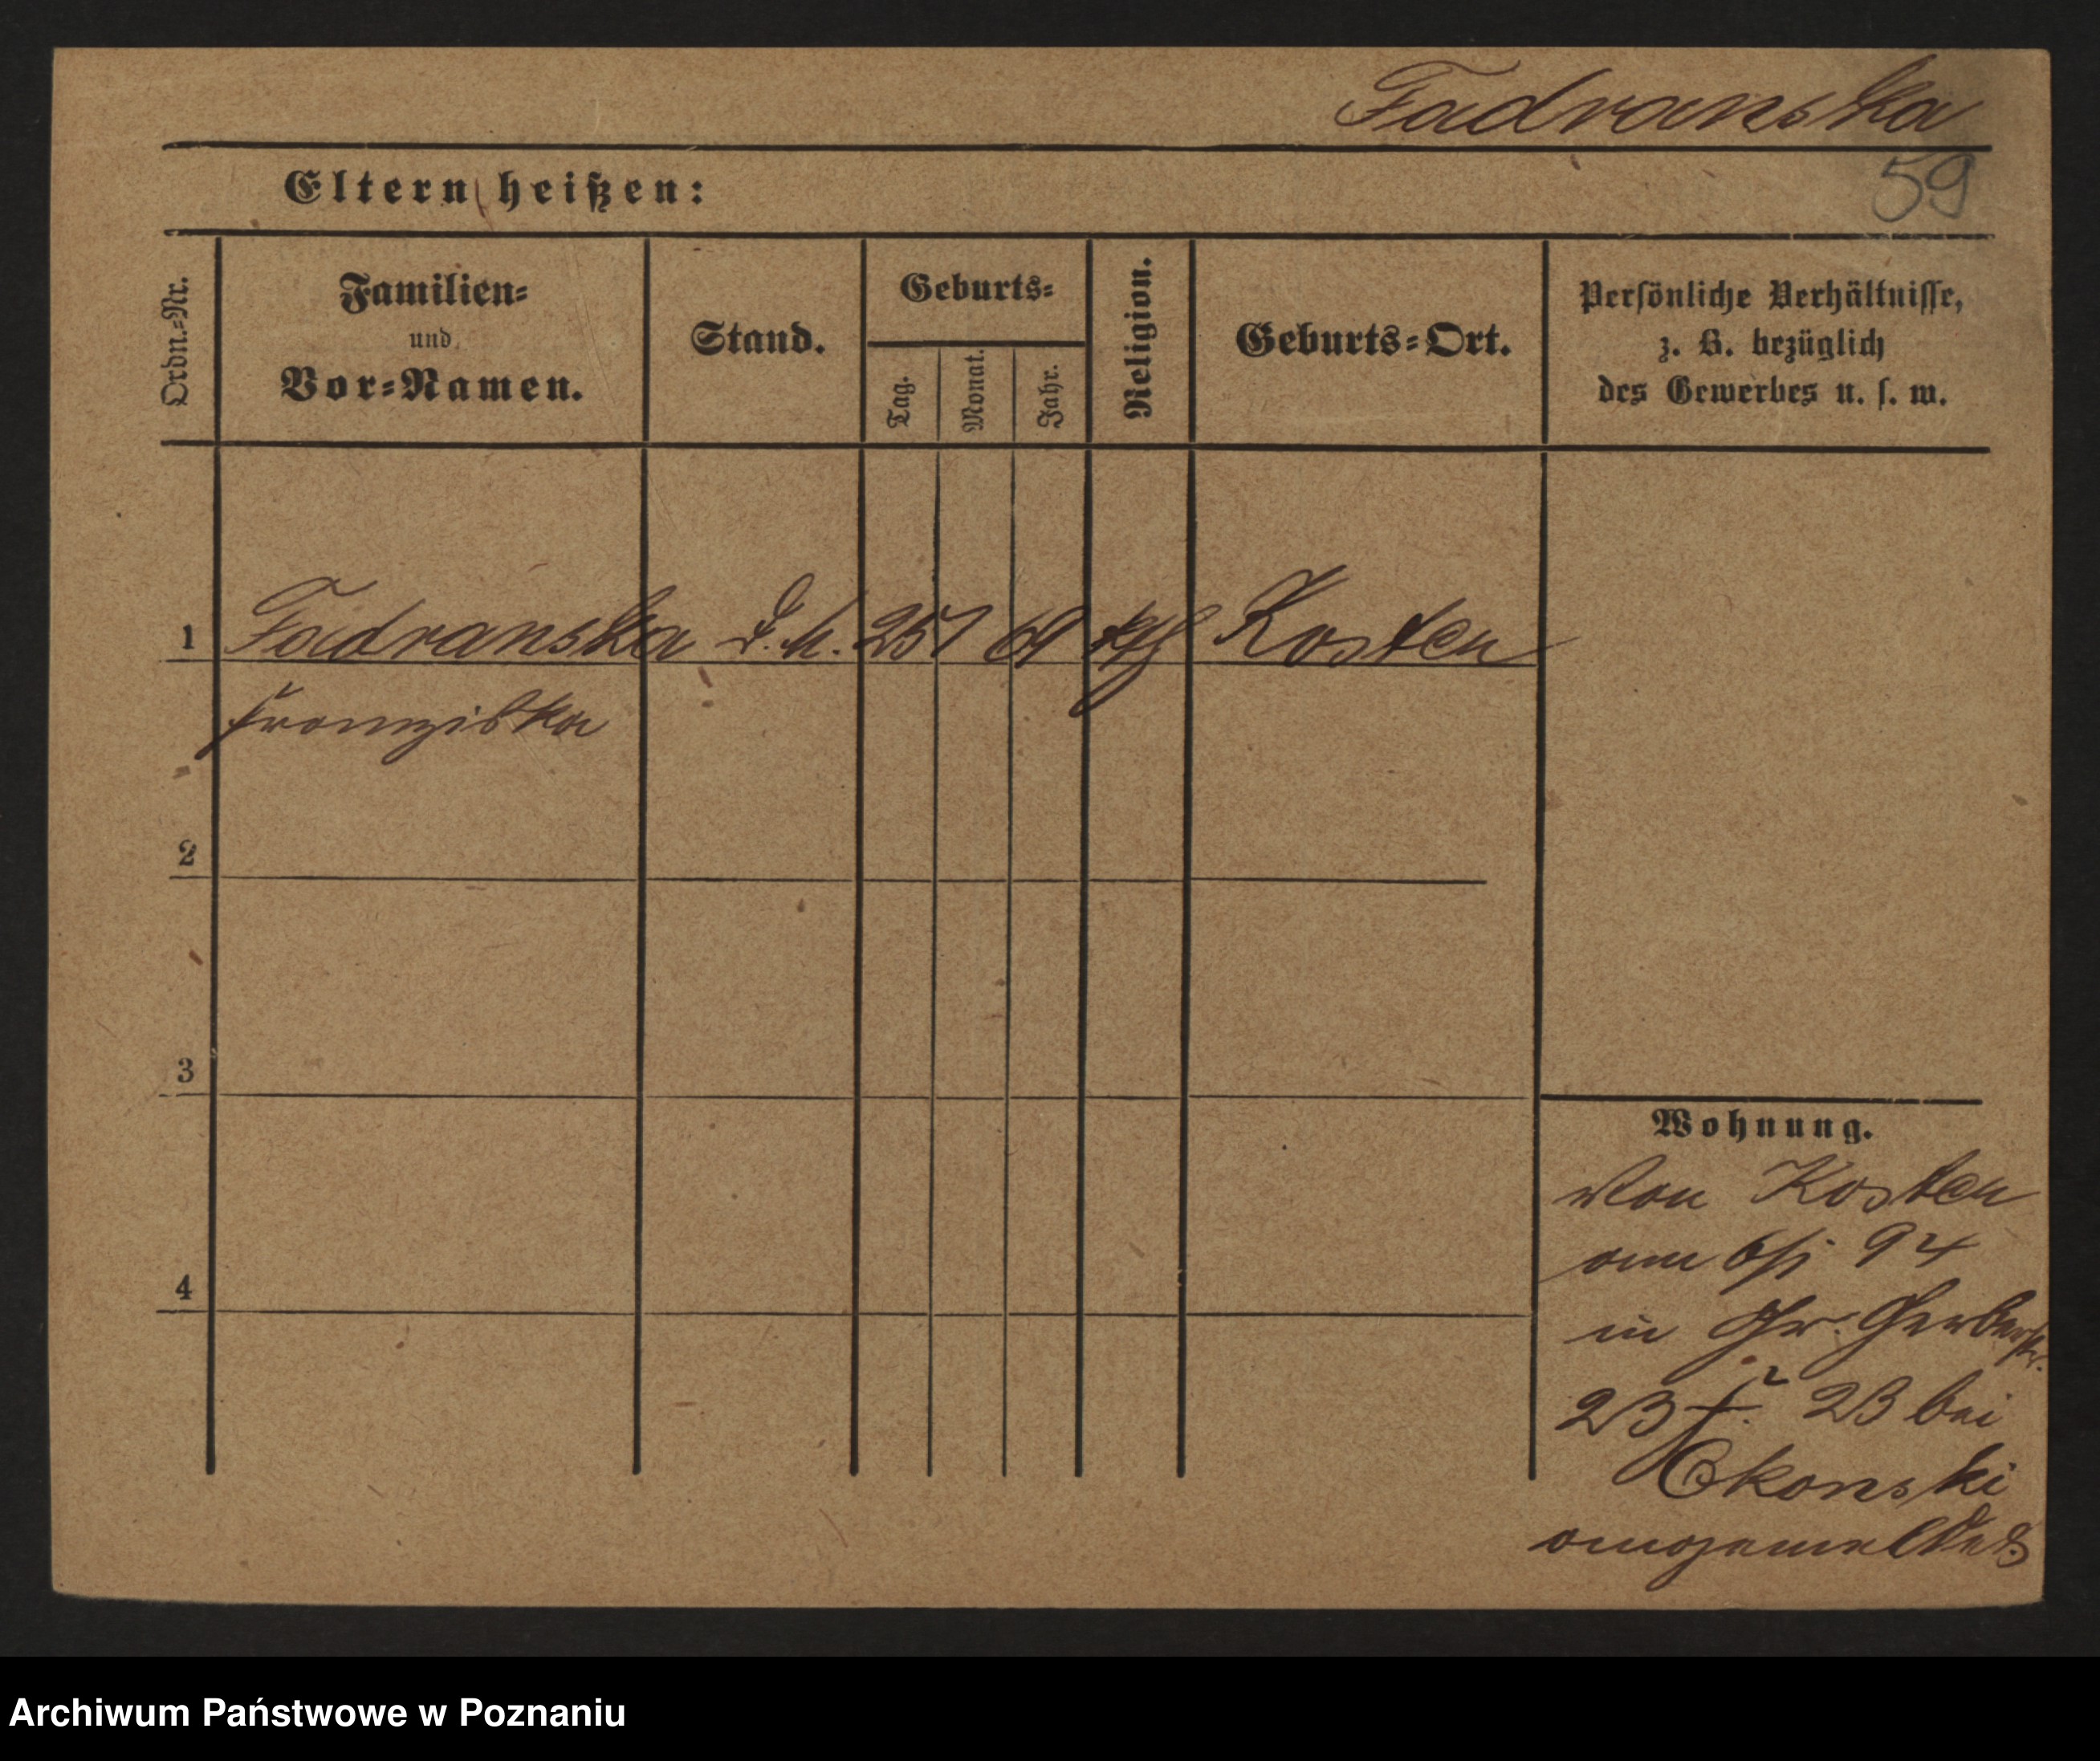 Fadranska
59
Eltern heißen:
Ordn.=Nr.
Familien=
und
Vor=Namen.
Stand.
Geburts=
Tag.
Monat.
Jahr.
Religion.
Geburts=Ort.
Persönliche Verhältnisse,
z. B. bezüglich
des Gewerbes u. s. w.
1 Fadranska D. M. 25 1 69 kth Kosten
Franziska
2
3
4
Wohnung.
Von Kosten
am 6/1 94
in Gr. Gerberstr.
23 bei
Okonski
angemeldet
Archiwum Państwowe w Poznaniu